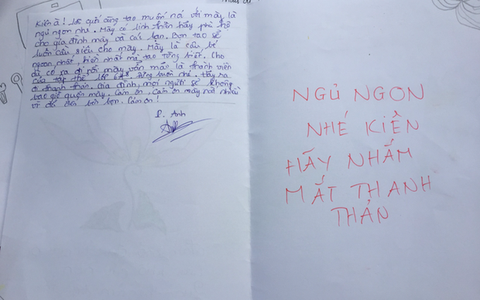 Kiên à! Lời cuối cùng tao muốn nói với mày là
ngủ ngon nha. Mày có linh thiên hãy phù hộ
cho gia đình mày và các bạn. Bọn tao sẽ
luôn cầu siêu cho mày. Mày là cậu bé
ngoan nhất, hiền nhất mà tao từng biết. Cho
dù có ra đi rồi mày vẫn mãi là thành viên
của lớp
ở thanh thản. Gia đình, mọi người sẽ không
bao giờ quên mày. Cảm ơn. Cảm ơn mày rất nhiều
vì đã đến bên bọn. Cảm ơn!
P. Anh
NGỦ NGON
NHÉ KIÊN
HÃY NHẮM
MẮT THANH
THẢN